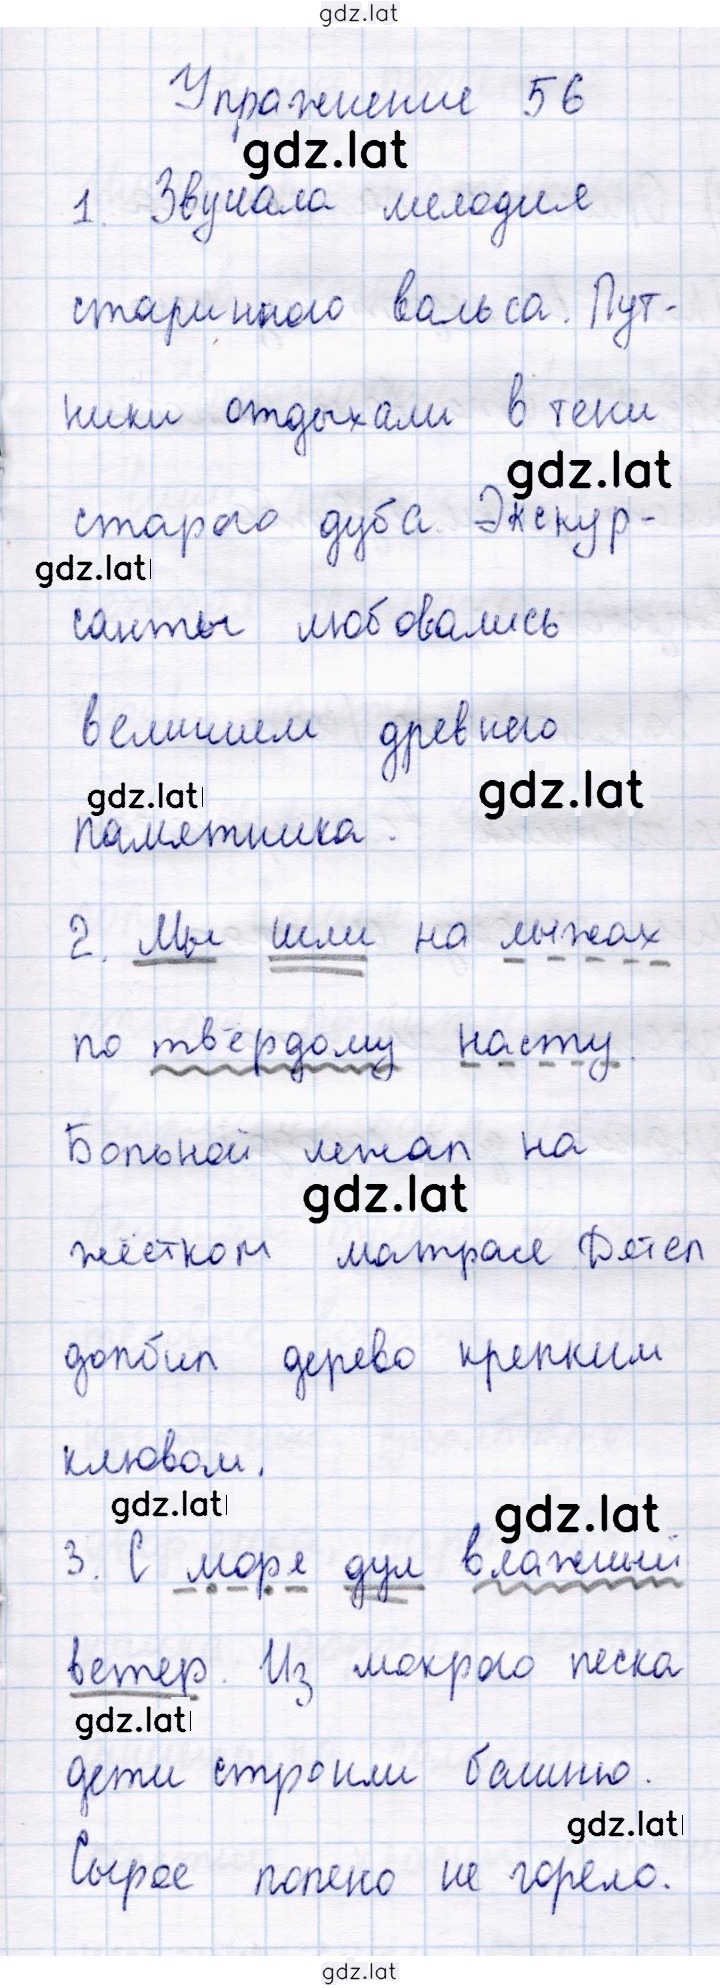 gdz.lat
Упражнение 56
gdz.lat
1. Звучала мелодия
старинного вальса. Пут-
ники отдыхали в тени
gdz.lat
старого дуба. Экскур-
gdz.lat
санты любовались
величием древнего
gdz.lat gdz.lat
памятника.
2. Мы шли на лыжах
по твёрдому насту.
Больной лежал на
gdz.lat
жёстком матрасе. Дятел
долбил дерево крепким
клювом.
gdz.lat gdz.lat
3. С моря дул влажный
ветер. Из мокрого песка
gdz.lat
дети строили башню.
gdz.lat
Сырое полено не горело.
gdz.lat